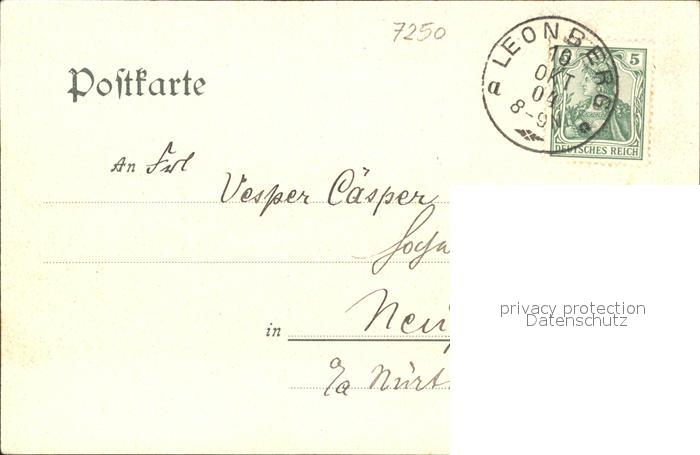 7250
LEONBERG
OKT
04
8-9N
a
5
DEUTSCHES REICH
Postkarte
An Frl
Vesper Cäsper
in Neu
Nürt.
privacy protection
Datenschutz